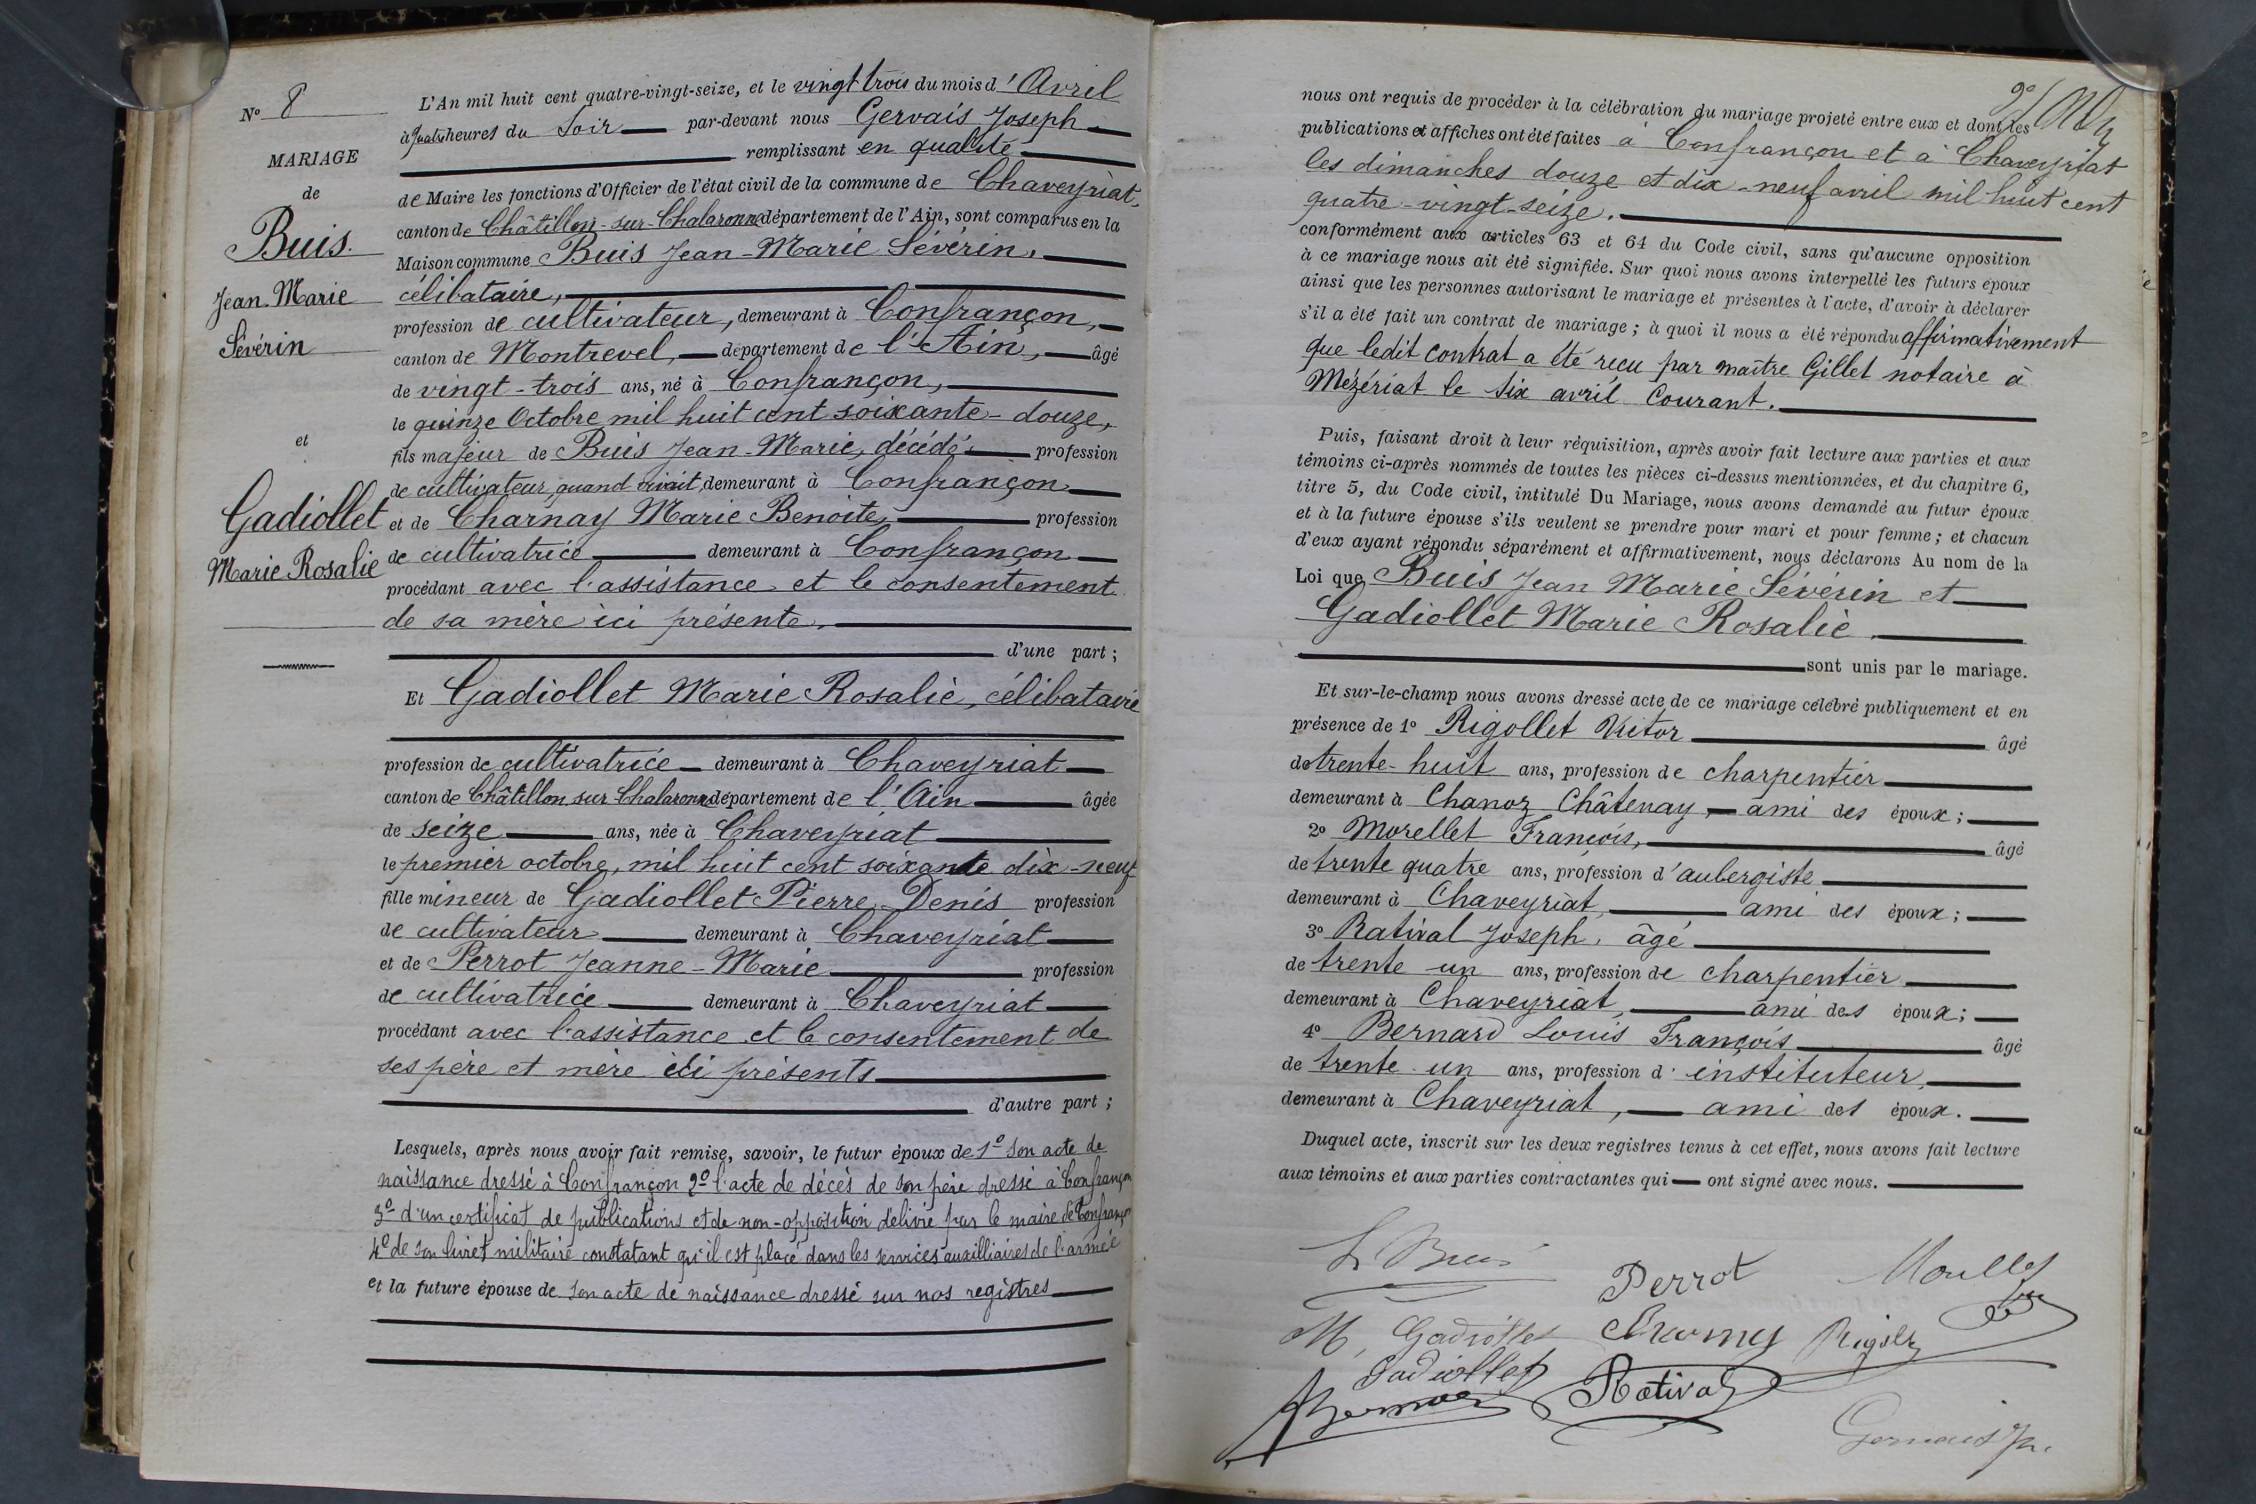 N° 8
MARIAGE
de
Buis
Jean-Marie
Sévérin
et
Gadiollet
Marie Rosalie
L'An mil huit cent quatre-vingt-seize, et le vingt trois du mois d'Avril
à quatre heures du Soir par-devant nous Gervais Joseph
remplissant en qualité
de Maire les fonctions d'Officier de l'état civil de la commune de Chaveyriat,
canton de Châtillon-sur-Chalaronne département de l'Ain, sont comparus en la
Maison commune Buis Jean-Marie Sévérin,
célibataire,
profession de cultivateur, demeurant à Confrançon,
canton de Montrevel, département de l'Ain, âgé
de vingt-trois ans, né à Confrançon,
le quinze Octobre mil huit cent soixante-douze,
fils majeur de Buis Jean-Marie, décédé profession
de cultivateur quand vivait, demeurant à Confrançon
et de Charnay Marie Benoite, profession
de cultivatrice demeurant à Confrançon
procédant avec l'assistance et le consentement
de sa mère ici présente.
d'une part ;
Et Gadiollet Marie Rosalie, célibataire
profession de cultivatrice demeurant à Chaveyriat
canton de Châtillon sur Chalaronne département de l'Ain âgée
de seize ans, née à Chaveyriat
le premier octobre, mil huit cent soixante dix-neuf
fille mineur de Gadiollet Pierre-Denis profession
de cultivateur demeurant à Chaveyriat
et de Perrot Jeanne-Marie profession
de cultivatrice demeurant à Chaveyriat
procédant avec l'assistance et le consentement de
ses père et mère ici présents
d'autre part ;
Lesquels, après nous avoir fait remise, savoir, le futur époux de 1° son acte de
naissance dressé à Confrançon 2° l'acte de décès de son père dressé à Confrançon
3° d'un certificat de publications et de non-opposition délivré par le maire de Confrançon
4° de son livret militaire constatant qu'il est placé dans les services auxilliaires de l'armée
et la future épouse de son acte de naissance dressé sur nos registres
nous ont requis de procéder à la célébration du mariage projeté entre eux et dont les
publications et affiches ont été faites à Confrançon et à Chaveyriat
les dimanches douze et dix-neuf avril mil huit cent
quatre-vingt-seize.
conformément aux articles 63 et 64 du Code civil, sans qu'aucune opposition
à ce mariage nous ait été signifiée. Sur quoi nous avons interpellé les futurs époux
ainsi que les personnes autorisant le mariage et présentes à l'acte, d'avoir à déclarer
s'il a été fait un contrat de mariage ; à quoi il nous a été répondu affirmativement
que ledit contrat a été reçu par maître Gillet notaire à
Mézériat le six avril courant.
Puis, faisant droit à leur réquisition, après avoir fait lecture aux parties et aux
témoins ci-après nommés de toutes les pièces ci-dessus mentionnées, et du chapitre 6,
titre 5, du Code civil, intitulé Du Mariage, nous avons demandé au futur époux
et à la future épouse s'ils veulent se prendre pour mari et pour femme ; et chacun
d'eux ayant répondu séparément et affirmativement, nous déclarons Au nom de la
Loi que Buis Jean Marie Sévérin et
Gadiollet Marie Rosalie
sont unis par le mariage.
Et sur-le-champ nous avons dressé acte de ce mariage célébré publiquement et en
présence de 1° Rigollet Victor âgé
de trente-huit ans, profession de charpentier
demeurant à Chanoz Châtenay, ami des époux ;
2° Morellet François, âgé
de trente quatre ans, profession d'aubergiste
demeurant à Chaveyriat, ami des époux ;
3° Ratival Joseph, âgé
de trente un ans, profession de charpentier
demeurant à Chaveyriat, ami des époux ;
4° Bernard Louis François âgé
de trente un ans, profession d'instituteur,
demeurant à Chaveyriat, ami des époux.
Duquel acte, inscrit sur les deux registres tenus à cet effet, nous avons fait lecture
aux témoins et aux parties contractantes qui ont signé avec nous.
Buis
Perrot
M. Gadiollet
Gadiollet
Rativat